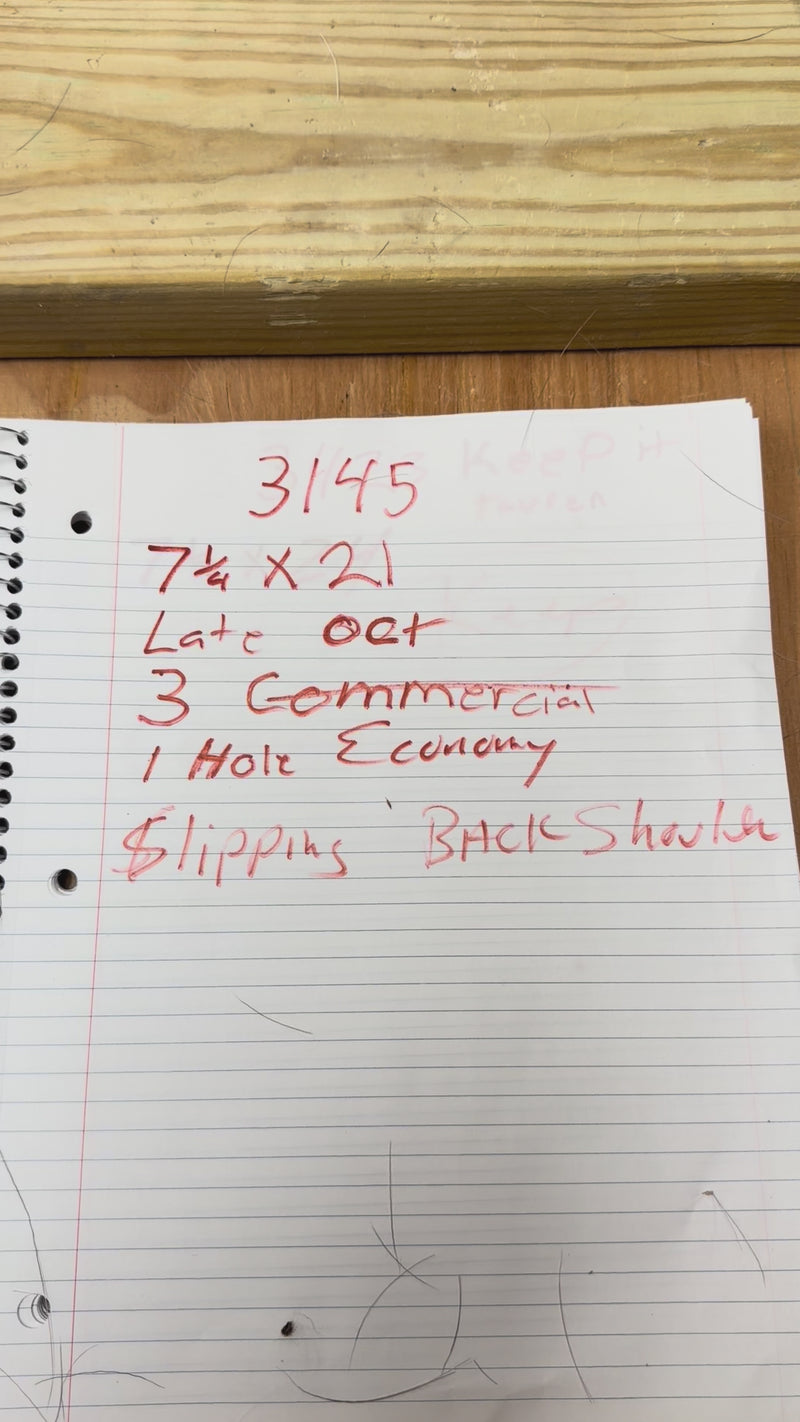 3145
7 1/4 X 21
Late Oct
3 Commercial
1 Hole Economy
Slipping BACK Shoulder
Keep it